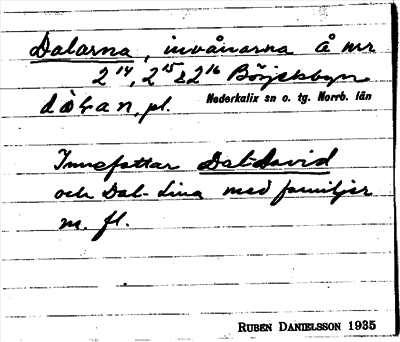 Dalarna, invånarna å nr
2¹⁴, 2¹⁵ & 2¹⁶ Börjelsbyn
Nederkalix sn o. tg. Norrb. län
Innefattar Dal-David
och Dal-Lina med familjer
m. fl.
RUBEN DANIELSSON 1935